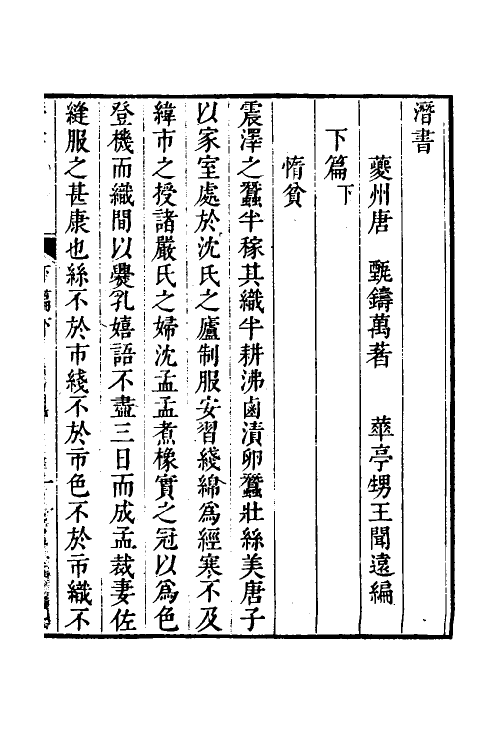 潛書
夔州唐 甄鑄萬著 華亭甥王聞遠編
下篇下
惰貧
震澤之蠶半稼其織半耕沸鹵漬卵蠶壯絲美唐子
以家室處於沈氏之廬制服安習綫綿為經寒不及
緯市之授諸嚴氏之婦沈孟孟煮橡實之冠以為色
登機而織間以爨乳嬉語不盡三日而成孟裁妻佐
縫服之甚康也絲不於市綫不於市色不於市織不